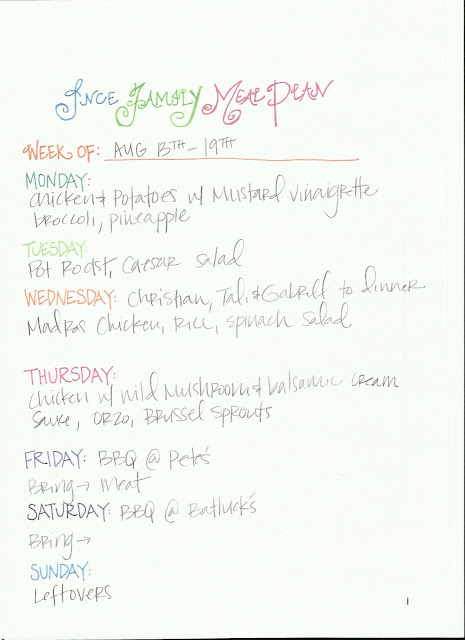 Ince Family Meal Plan
WEEK OF: AUG 13TH - 19TH
MONDAY:
Chicken & Potatoes w/ Mustard Vinaigrette
broccoli, pineapple
TUESDAY:
Pot Roast, Caesar Salad
WEDNESDAY: Christian, Tali & Gabriel to dinner
Madras Chicken, Rice, Spinach Salad
THURSDAY:
Chicken w/ wild Mushroom & balsamic cream
Sauce, Orzo, Brussel Sprouts
FRIDAY: BBQ @ Pete's
Bring → Meat
SATURDAY: BBQ @ Batluck's
Bring →
SUNDAY:
Leftovers